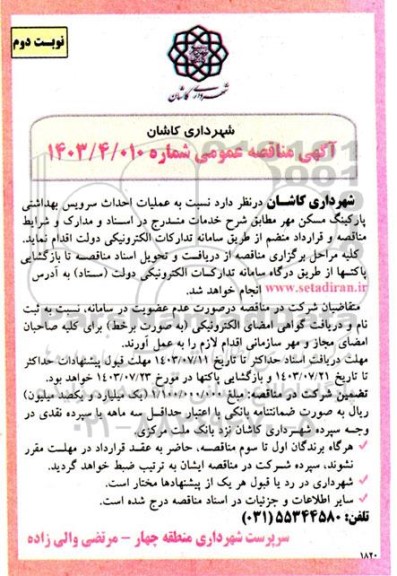 نوبت دوم
شهرداری کاشان
شهرداری کاشان
آگهی مناقصه عمومی شماره ۱۴۰۳/۴/۰۱۰
شهرداری کاشان درنظر دارد نسبت به عملیات احداث سرویس بهداشتی
پارکینگ مسکن مهر مطابق شرح خدمات مندرج در اسناد و مدارک و شرایط
مناقصه و قرارداد منضم از طریق سامانه تدارکات الکترونیکی دولت اقدام نماید.
کلیه مراحل برگزاری مناقصه از دریافت و تحویل اسناد مناقصه تا بازگشایی
پاکتها از طریق درگاه سامانه تدارکات الکترونیکی دولت (ستاد) به آدرس
www.setadiran.ir انجام خواهد شد.
متقاضیان شرکت در مناقصه درصورت عدم عضویت در سامانه، نسبت به ثبت
نام و دریافت گواهی امضای الکترونیکی (به صورت برخط) برای کلیه صاحبان
امضای مجاز و مهر سازمانی اقدام لازم را به عمل آورند.
مهلت دریافت اسناد حداکثر تا تاریخ ۱۴۰۳/۰۷/۱۱ مهلت قبول پیشنهادات حداکثر
تا تاریخ ۱۴۰۳/۰۷/۲۱ و بازگشایی پاکتها در مورخ ۱۴۰۳/۰۷/۲۳ خواهد بود.
تضمین شرکت در مناقصه: مبلغ ۱/۱۰۰/۰۰۰/۰۰۰ (یک میلیارد و یکصد میلیون)
ریال به صورت ضمانتنامه بانکی با اعتبار حداقل سه ماهه یا سپرده نقدی در
وجه سپرده شهرداری کاشان نزد بانک ملت مرکزی.
✓ هرگاه برندگان اول تا سوم مناقصه، حاضر به عقد قرارداد در مهلت مقرر
نشوند، سپرده شرکت در مناقصه ایشان به ترتیب ضبط خواهد گردید.
✓ شهرداری در رد یا قبول هر یک از پیشنهادها مختار است.
✓ سایر اطلاعات و جزئیات در اسناد مناقصه درج شده است.
تلفن: ۵۵۳۴۴۵۸۰ (۰۳۱)
سرپرست شهرداری منطقه چهار – مرتضی والی زاده
۱۸۲۰